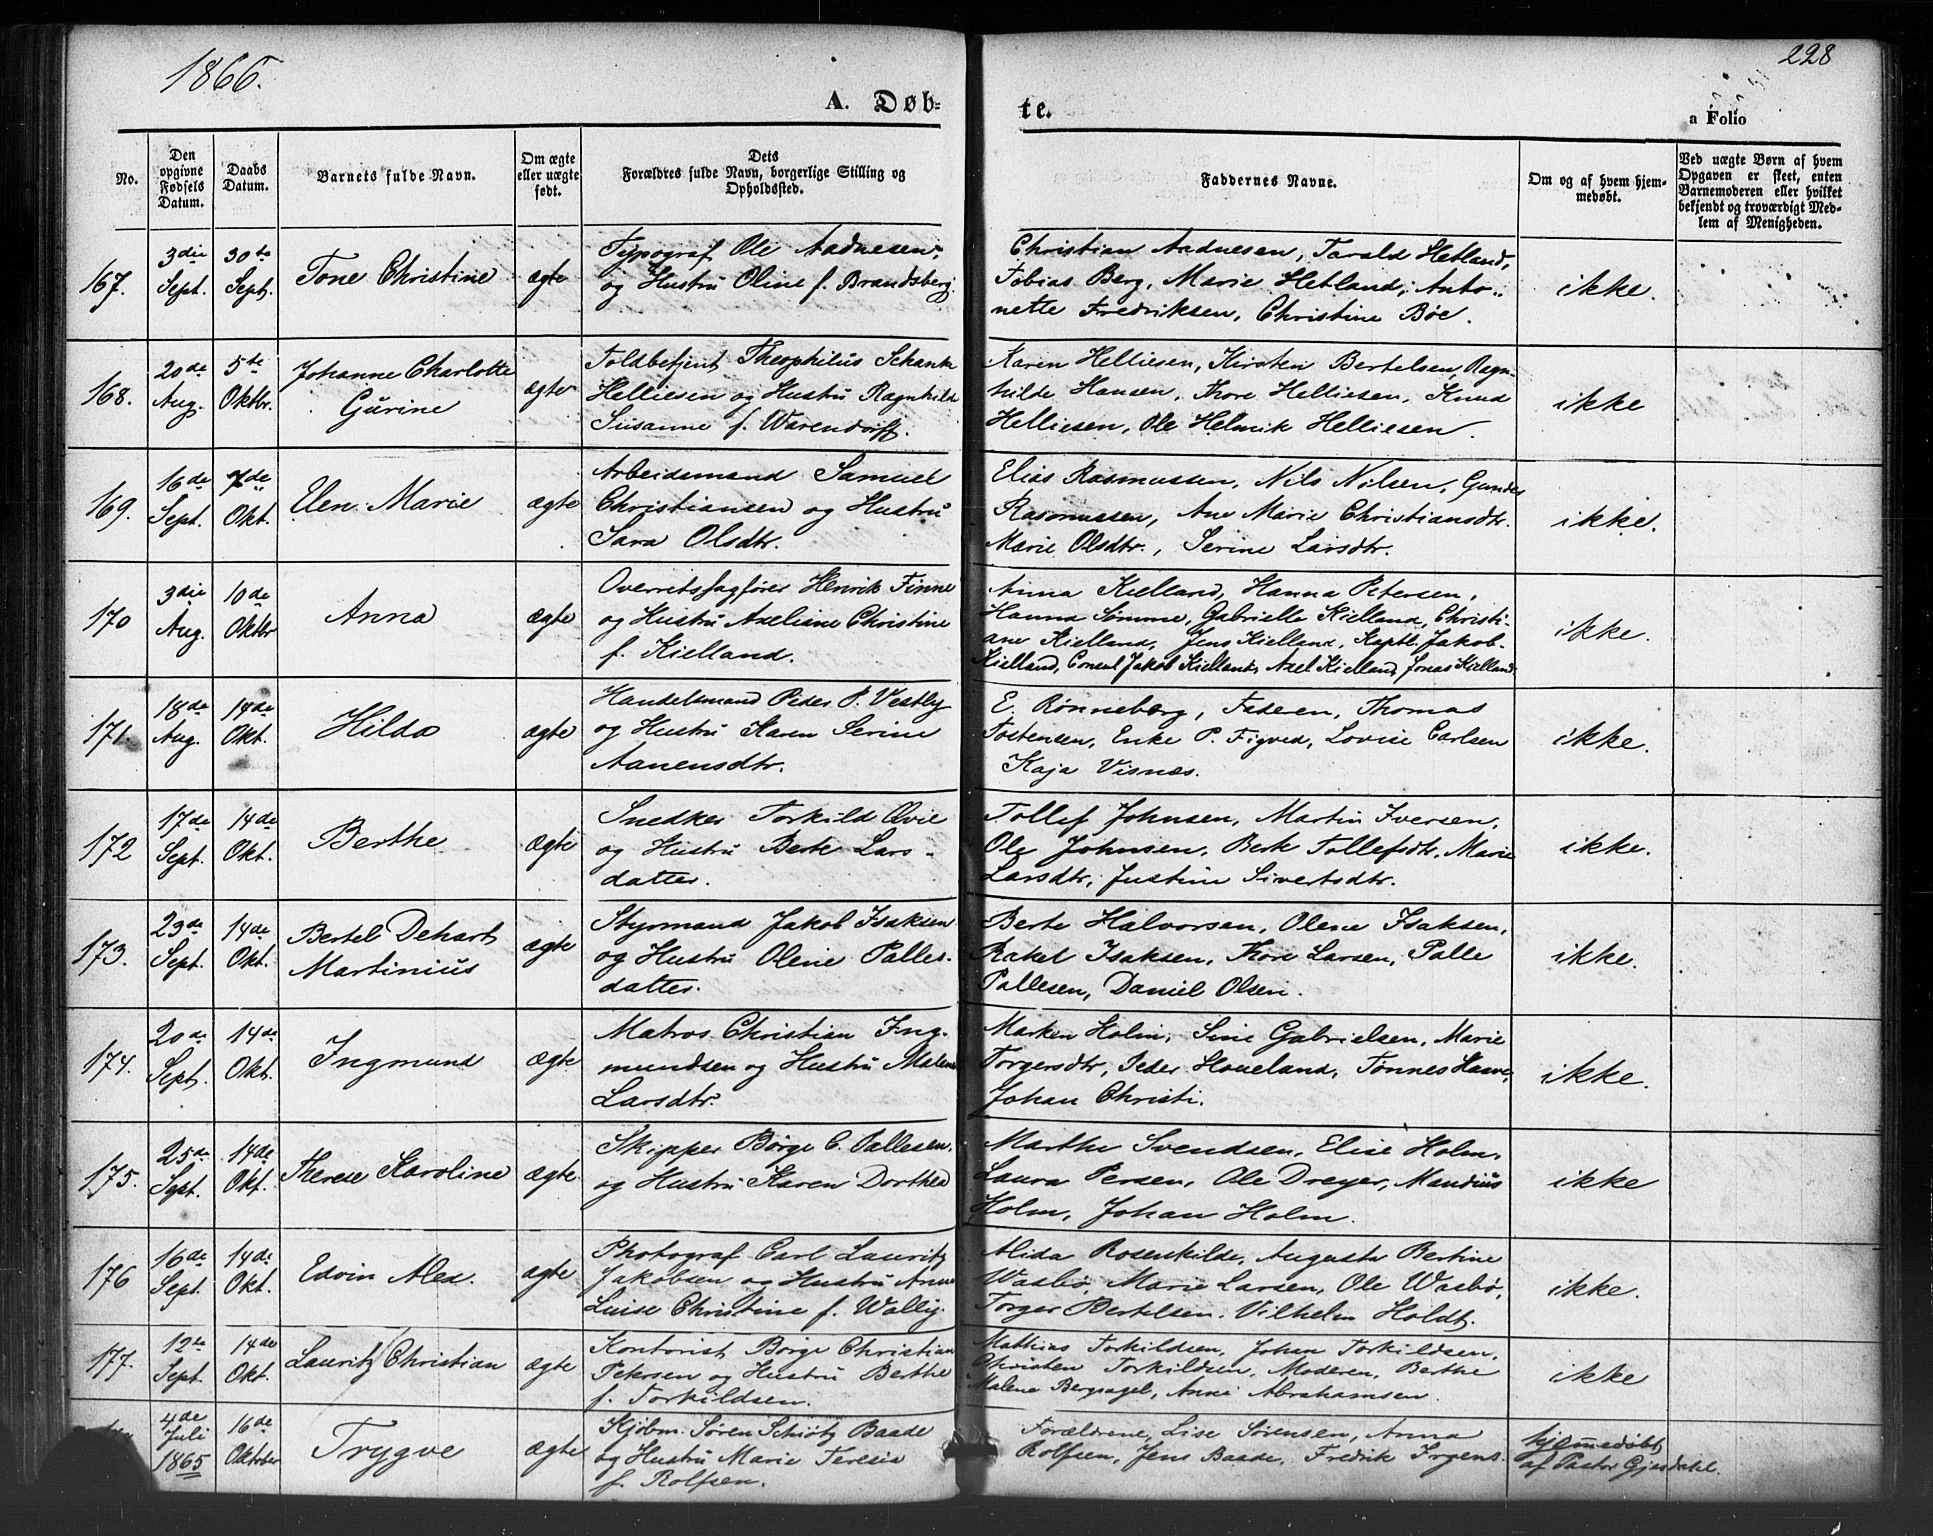 1866.
228
A. Døb-
te.
a Folio
No.
Den
opgivne
Fødsels
Datum.
Daabs
Datum.
Barnets fulde Navn.
Om ægte
eller uægte
født.
Dets
Forældres fulde Navn, borgerlige Stilling og
Opholdssted.
Faddernes Navne.
Om og af hvem hjem-
medøbt.
Ved uægte Børn af hvem
Opgaven er skeet, enten
Barnemoderen eller hvilket
bekjendt og troværdigt Med-
lem af Menigheden.
167.
3die
Sept.
30te
Sept.
Tone Christine
ægte
Typograf Ole Aadnesen,
og Hustru Oline f. Brandsberg.
Christian Aadnesen, Tarald Hetland,
Tobias Berg, Marie Hetland, Anto-
nette Fredriksen, Christine Bøe.
ikke.
168.
20de
Aug.
5te
Oktbr.
Johanne Charlotte
Gurine
ægte
Toldbetjent Theophilus Schanke
Helliesen og Hustru Ragnhild
Susanne f. Warendorff.
Karen Helliesen, Kirsten Bertelsen, Ragn-
hilde Hansen, Thore Helliesen, Knud
Helliesen, Ole Helmik Helliesen.
ikke
169.
16de
Sept.
7de
Okt.
Elen Marie
ægte
Arbeidsmand Samuel
Christiansen og Hustru
Sara Olsdtr.
Elias Rasmussen, Nils Nilsen, Gunder
Rasmussen, Ane Marie Christiansdtr.
Marie Olsdtr., Serine Larsdtr.
ikke.
170
3die
Aug.
10de
Oktbr
Anna
ægte
Overretssagfører Henrik Finne
og Hustru Axeliane Christine
f. Kielland.
Anna Kielland, Hanna Petersen,
Hanna Sømme, Gabrielle Kielland, Christi-
ane Kielland, Jens Kielland, Kaptl. Jakob
Kielland, Consul Jakob Kielland, Axel Kielland, Jonas Kielland
ikke.
171.
18de
Aug.
14de
Okt.
Hilda
ægte
Handelsmand Peder P. Vestly
og Hustru Karen Serine
Aanensdtr.
E. Rønneberg, Faderen, Thomas
Tostensen, Enke P. Figved, Lovise Carlsen
Kaja Visnæs.
ikke.
172
17de
Sept.
14de
Okt.
Berthe
ægte
Snedker Torkild Qvie
og Hustru Berte Lars-
datter.
Tollef Johnsen, Martin Iversen,
Ole Johnsen, Berte Tollefsdtr, Marie
Larsdtr, Justine Sivertsdtr.
ikke.
173.
23de
Sept.
14de
Okt.
Bertel Dehart
Martinius
ægte
Styrmand Jakob Isaksen
og Hustru Olene Palles-
datter.
Berte Halvorsen, Olene Isaksen,
Rakel Isaksen, Thore Larsen, Palle
Pallesen, Daniel Olsen.
ikke.
174.
20de
Sept.
14de
Okt.
Ingmund
ægte
Matros Christian Ing-
mundsen og Hustru Malene
Larsdtr.
Marken Holm, Sine Gabrielsen, Marie
Torgersdtr, Peder Houeland, Tønnes Haave,
Johan Christi.
ikke.
175.
25de
Sept.
14de
Okt.
Therese Karoline
ægte
Skipper Børge C. Pallesen,
og Hustru Karen Dorthea
Marthe Svendsen, Elise Holm,
Laura Persen, Ole Dreyer, Mandius
Holm, Johan Holm.
ikke
176
16de
Sept.
14de
Okt.
Edvin Alex.
ægte
Photograf Carl Lauritz
Jakobsen og Hustru Anne
Luise Christine f. Wallig.
Alida Rosenkilde, Augusta Bertine
Wasbø, Marie Larsen, Ole Wasbø,
Torger Bertelsen, Vilhelm Holdt.
ikke.
177.
12te
Sept.
14de
Okt.
Lauritz Christian
ægte
Kontorist Børge Christian
Petersen og Hustru Berthe
f. Torkildsen.
Mathias Torkildsen, Johan Torkildsen,
Christen Torkildsen, Moderen, Berthe
Malene Bergsagel, Anne Abrahamsen.
ikke
4de
Juli
1865
16de
Oktober
Trygve
ægte
Kjøbm. Søren Schiøtz Baade
og Hustru Marie Teresia
f. Rolfsen.
Forældrene, Lise Sørensen, Anna
Rolfsen, Jens Baade, Fredrik Irgens.
hjemmedøbt
af Pastor Gjesdahl.